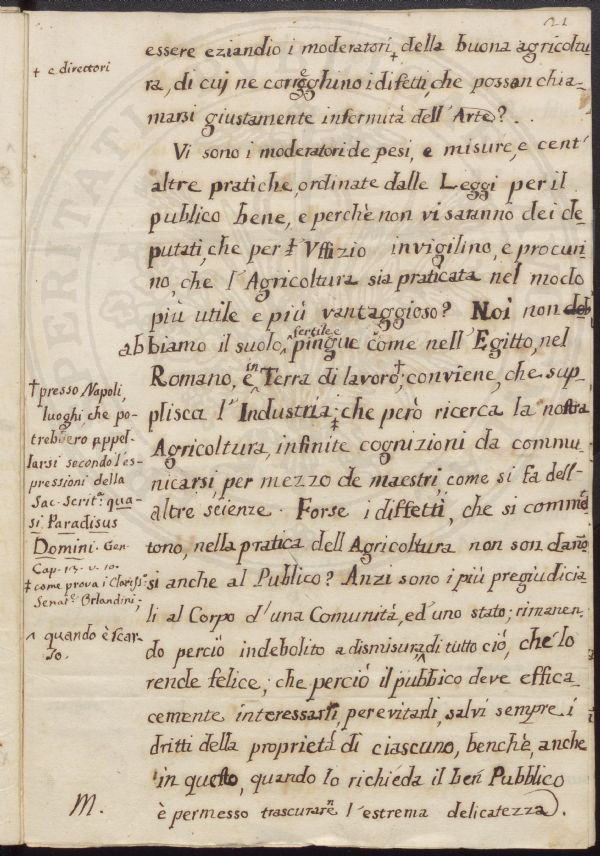 21
essere eziandio i moderatori + della buona agricoltu
+ e direttori
ra, di cui ne correghino i difetti, che possan chia-
marsi giustamente infermità dell'Arte?.
Vi sono i moderatori de pesi, e misure, e cent'
altre pratiche, ordinate dalle Leggi per il
publico bene, e perchè non vi saranno dei de
putati, che per Uffizio invigilino, e procuri
no, che l'Agricoltura sia praticata nel modo
più utile e più vantaggioso? Noi non
fertile e
abbiamo il suolo, ^ pingue come nell'Egitto, nel
Romano, e in Terra di lavoro†; conviene, che sup
plisca l'Industria; ‡ che però ricerca la nostra
Agricoltura, infinite cognizioni da commu
nicarsi, per mezzo de maestri, come si fa dell'
altre scienze. Forse i diffetti, che si comme
tono, nella pratica dell'Agricoltura non son dann̄o
si anche al Publico? Anzi sono i più pregiudicia
li al Corpo d'una Comunità, ed uno stato; rimanen
do perciò indebolito a dismisura, ^ di tutto ciò, che lo
rende felice; che perciò il pubbico deve effica
cemente interessarsi, per evitarli, salvi sempre i
dritti della proprietà di ciascuno, benchè, anche
in questo, quando lo richieda il ben Pubblico
è permesso trascurare l'estrema delicatezza.
† presso Napoli,
luoghi, che po-
trebbero appel-
larsi secondo l'es-
pressioni della
Sac. Scritt.ᵃ qua-
si Paradisus
Domini. Gen.
Cap. 13. v. 10.
‡ come prova i Clariss.ⁱ
Senat.ᵉ Orlandini;
^ quando è scar-
so.
M.